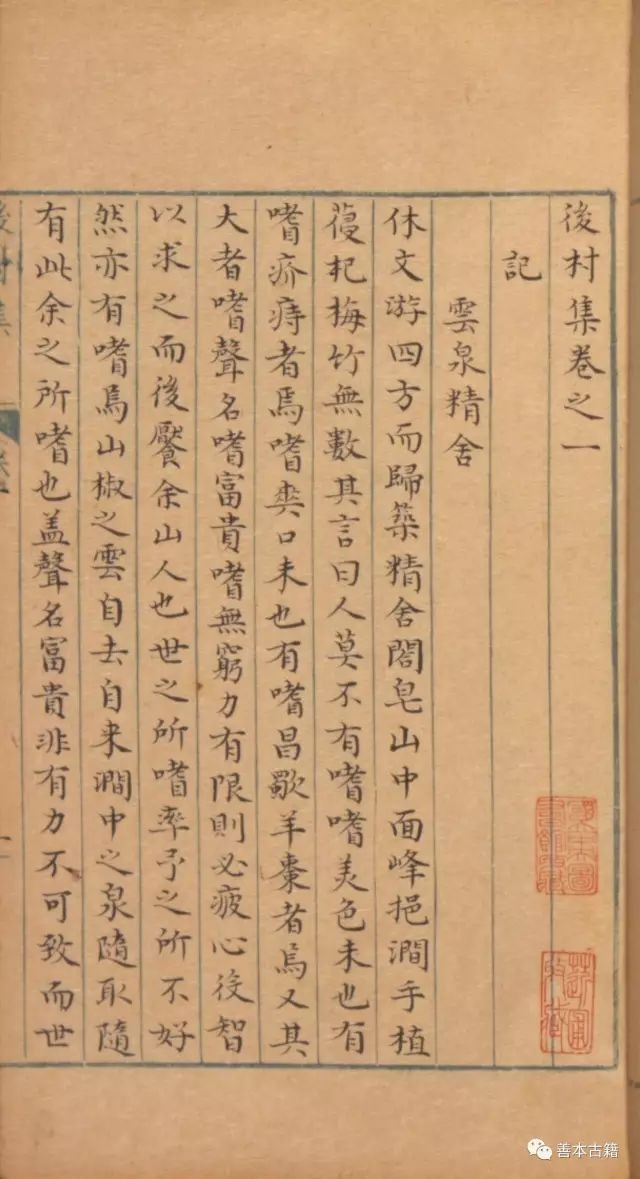 後村集卷之一
記
雲泉精舍
休文游四方而歸築精舍閤皂山中面峰挹澗手植
葠杞梅竹無數其言曰人莫不有嗜嗜美色未也有
嗜疥痔者焉嗜爽口未也有嗜昌歜羊棗者焉又其
大者嗜聲名嗜富貴嗜無窮力有限則必疲心役智
以求之而後饜余山人也世之所嗜率予之所不好
然亦有嗜焉山椒之雲自去自来澗中之泉隨取隨
有此余之所嗜也盖聲名富貴非有力不可致而世
後村集
善本古籍